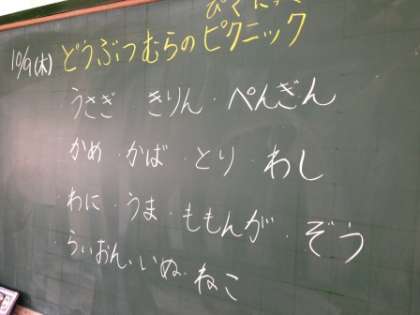 10/9(木) どうぶつむらのピクニック
うさぎ・きりん・ぺんぎん
かめ・かば・とり・わし
わに・うま・ももんが・ぞう
らいおん・いぬ・ねこ